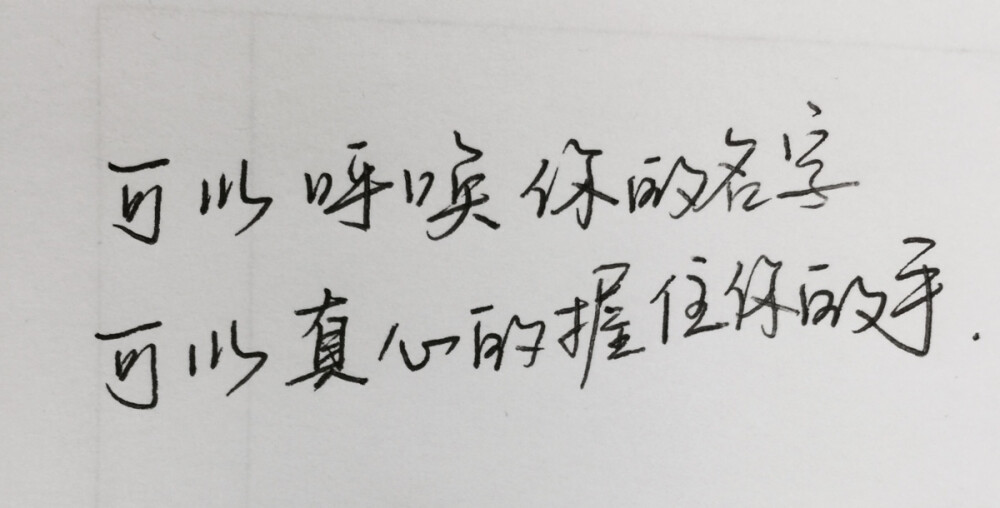 可以呼唤你的名字
可以真心的握住你的手.